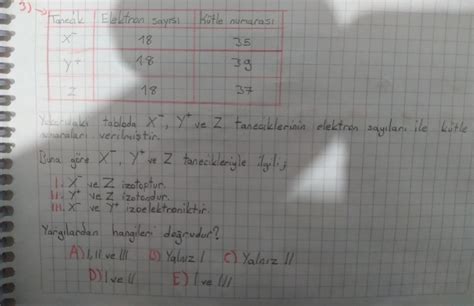 3)
Tanecik Elektron sayısı Kütle numarası
X⁻ 18 35
Y⁺ 18 39
Z 18 37
Yukarıdaki tabloda X⁻, Y⁺ ve Z taneciklerinin elektron sayıları ile kütle
numaraları verilmiştir.
Buna göre X⁻, Y⁺ ve Z tanecikleriyle ilgili;
I. X⁻ ve Z izotoptur.
II. Y⁺ ve Z izotondur.
III. X⁻ ve Y⁺ izoelektroniktir.
Yargılardan hangileri doğrudur?
A) I, II ve III B) Yalnız I C) Yalnız II
D) I ve II E) I ve III